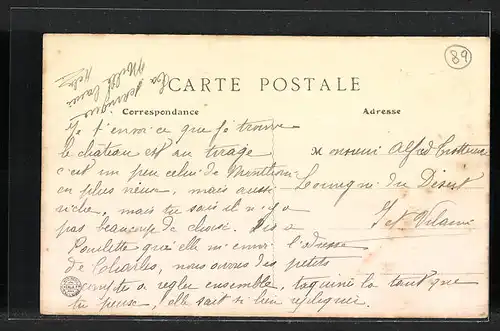 89
CARTE POSTALE
Correspondance
Adresse
Je t'envoie ce que je trouve
le château est au tirage
c'est un peu celui de
en plus vieux, mais aussi
riche, mais tu sais il n'y a
pas beaucoup de choix. Dis a
Poulette qu'elle m'envoi l'adresse
de Charles, nous avons des petits
comptes a regler ensemble, taquine la tant que
tu peux, elle sait si bien repliquer.
Monsieur Alfred
Louvigné du Désert
Ile et Vilaine